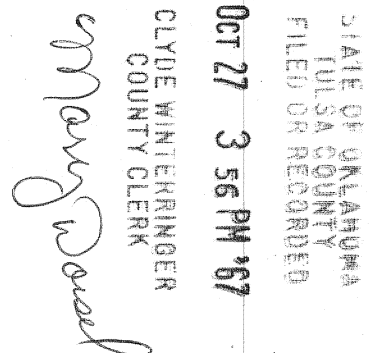 STATE OF OKLAHOMA
TULSA COUNTY
FILED OR RECORDED
OCT 27 3 56 PM '67
CLYDE WINTERRINGER
COUNTY CLERK
Mary